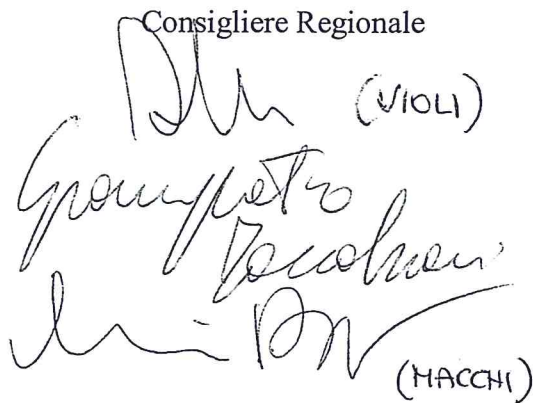 Consigliere Regionale
(VIOLI)
Giampietro
Maccabiani
(MACCHI)